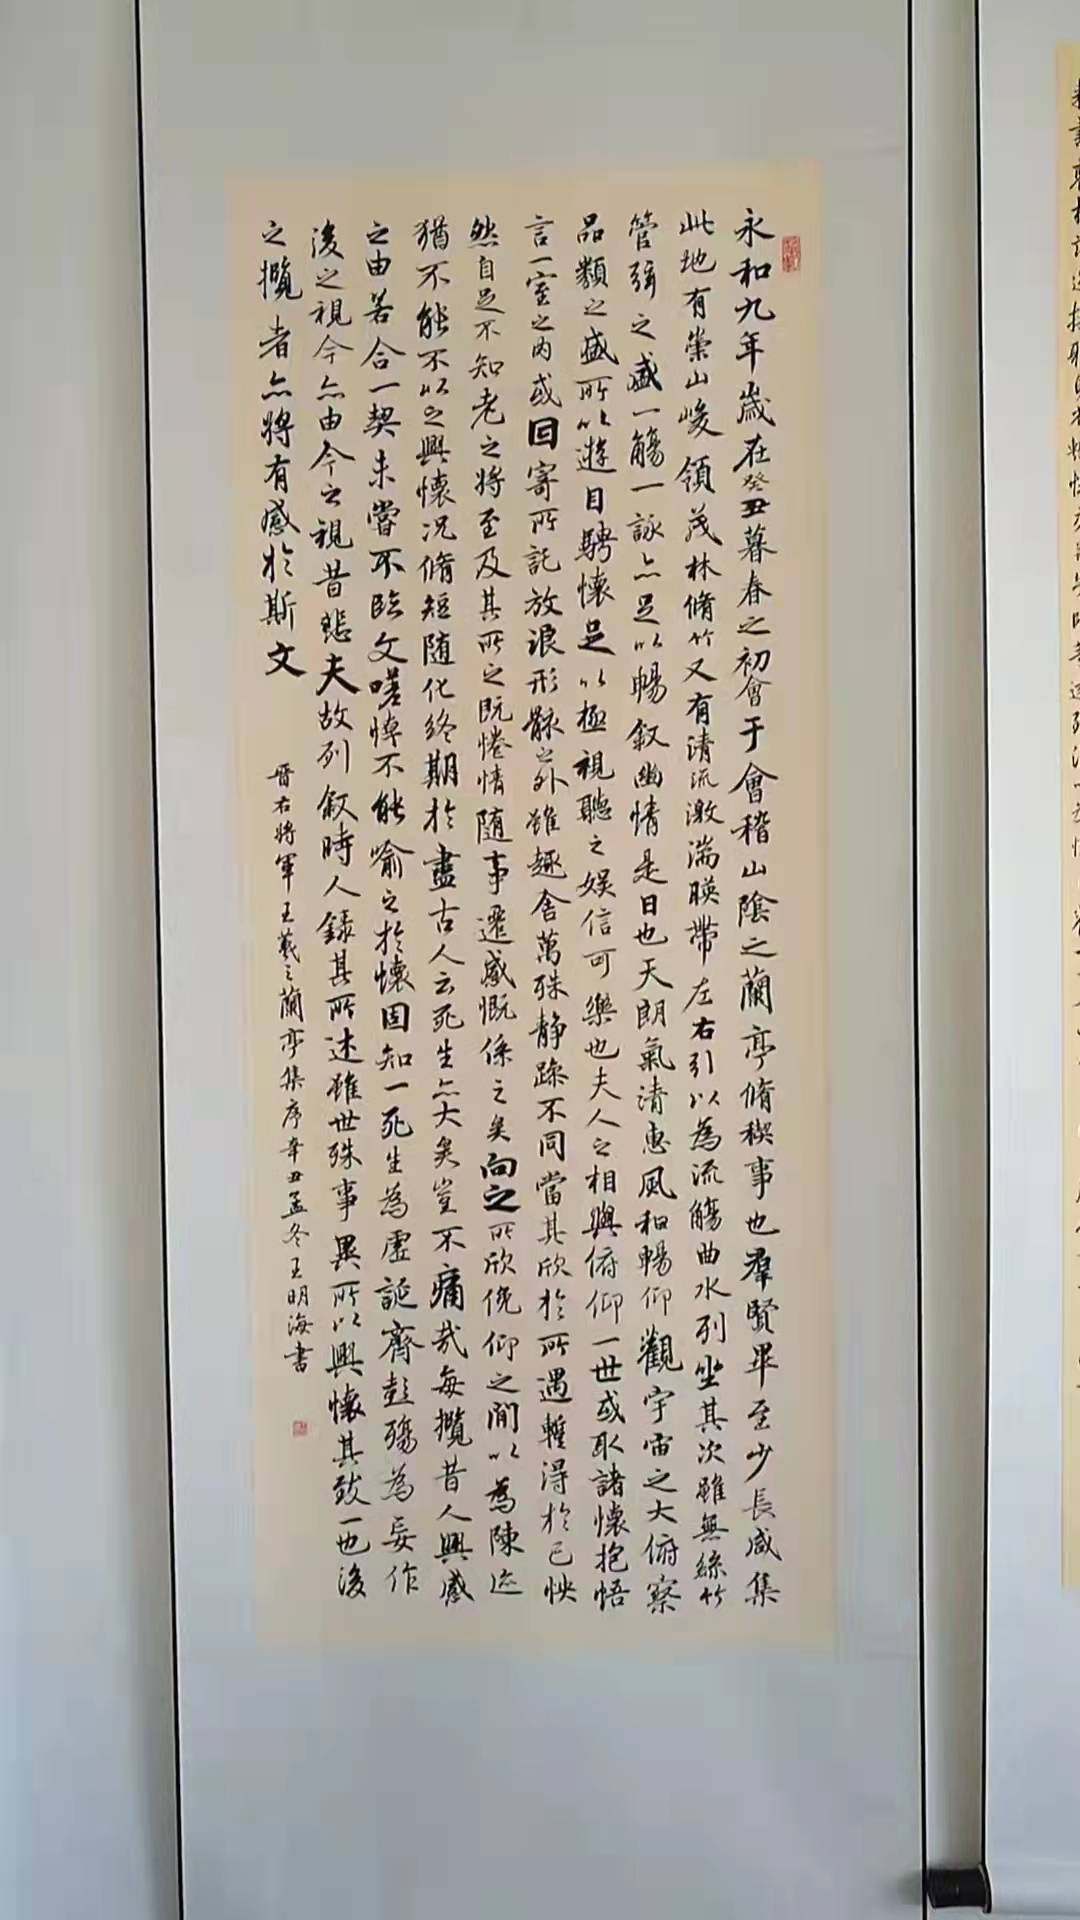 永和九年歲在癸丑暮春之初會于會稽山陰之蘭亭脩稧事也羣賢畢至少長咸集
此地有崇山峻領茂林脩竹又有清流激湍暎帶左右引以為流觴曲水列坐其次雖無絲竹
管弦之盛一觴一詠亦足以暢叙幽情是日也天朗氣清惠風和暢仰觀宇宙之大俯察
品類之盛所以遊目騁懷足以極視聽之娱信可樂也夫人之相與俯仰一世或取諸懷抱悟
言一室之内或回寄所託放浪形骸之外雖趣舍萬殊静躁不同當其欣於所遇暫得於己怏
然自足不知老之將至及其所之既惓情隨事遷感慨係之矣向之所欣俛仰之閒以為陳迹
猶不能不以之興懷况脩短随化終期於盡古人云死生亦大矣豈不痛哉每攬昔人興感
之由若合一契未嘗不臨文嗟悼不能喻之於懷固知一死生為虛誕齊彭殤為妄作
後之視今亦由今之視昔悲夫故列叙時人録其所述雖世殊事異所以興懷其致一也後
之攬者亦將有感於斯文
晉右將軍王羲之蘭亭集序辛丑孟冬王明海書